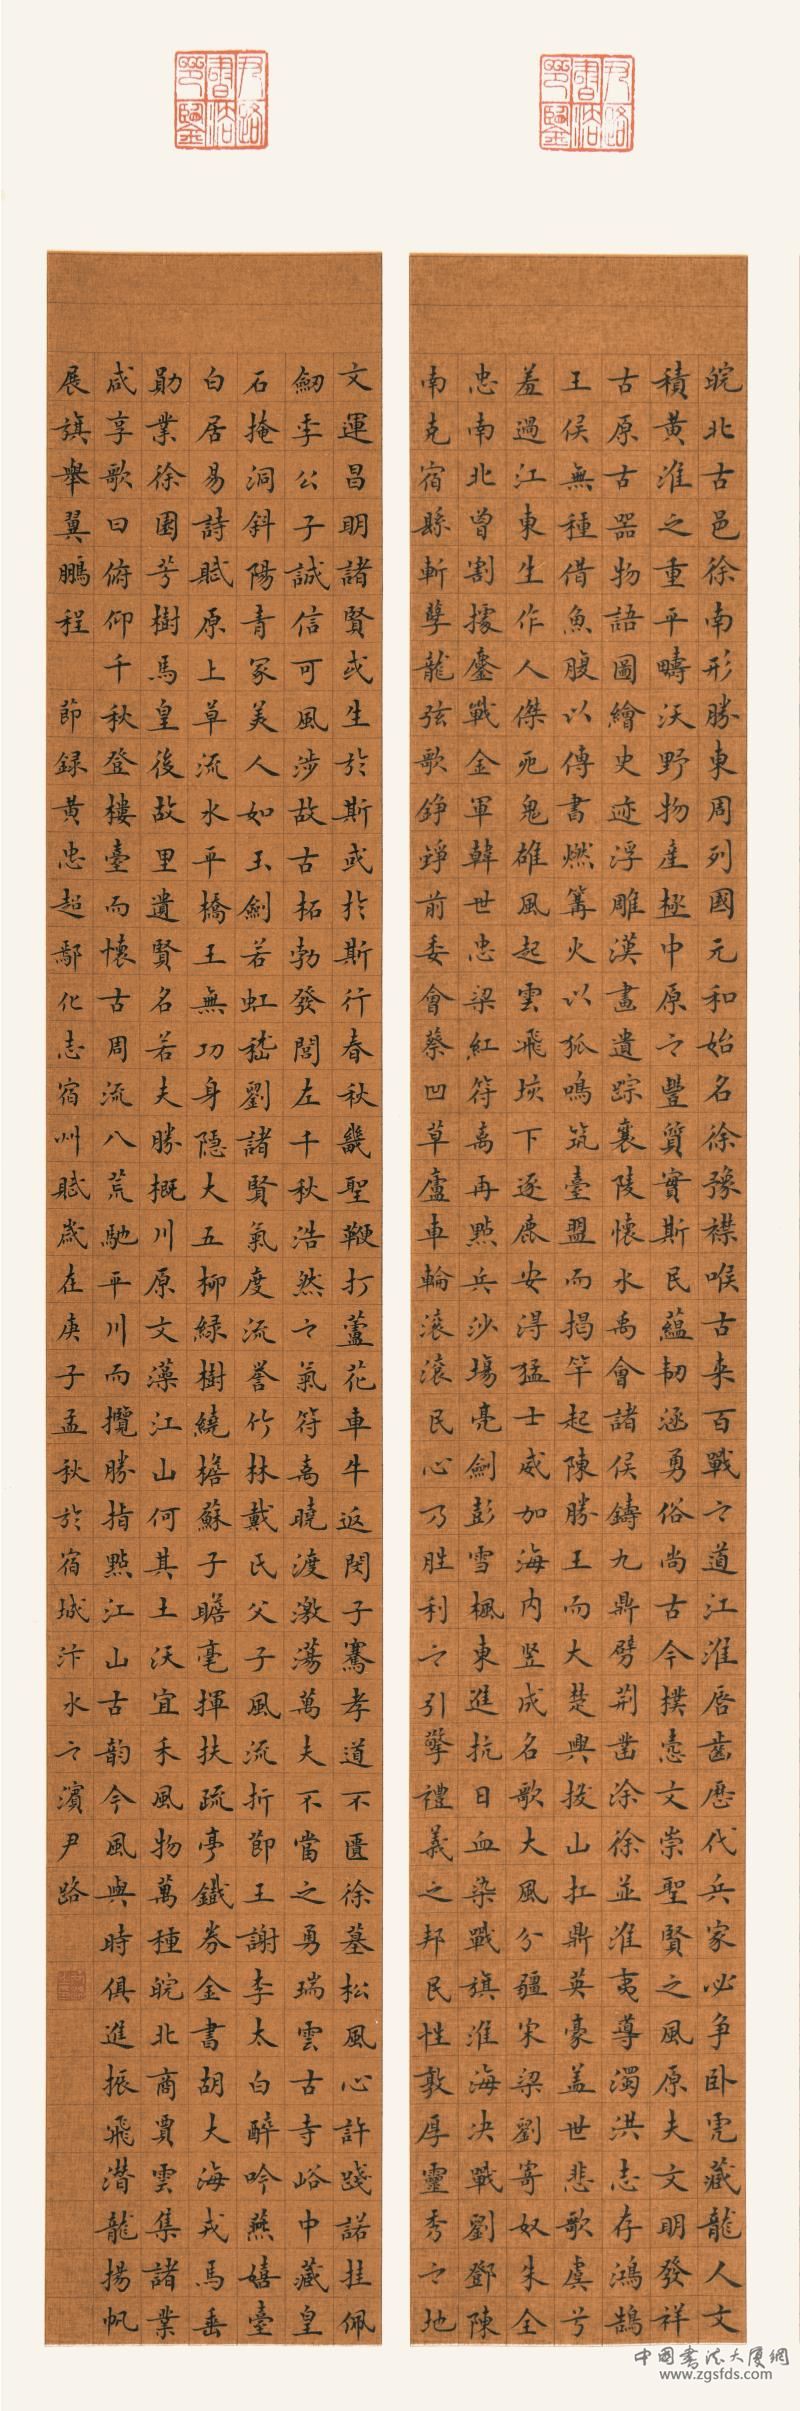 皖北古邑徐南形勝東周列國元和始名徐豫襟喉古来百戰之道江淮唇齒歷代兵家必争卧虎藏龍人文
積黄淮之重平疇沃野物産極中原之豐質實斯民蘊韧涵勇俗尚古今樸慤文崇聖賢之風原夫文明發祥
古原古器物語圖繪史迹浮雕漢畫遺踪襄陵懷水禹會諸侯鑄九鼎劈荆凿涂徐並淮夷導濁洪志存鴻鵠
王侯無種借魚腹以傳書燃篝火以狐鳴筑臺盟而揭竿起陳勝王而大楚興拔山扛鼎英豪盖世悲歌虞兮
羞過江東生作人傑死鬼雄風起雲飛垓下逐鹿安得猛士威加海内竖成名歌大風分疆宋梁劉寄奴朱全
忠南北曾割據鏖戰金軍韓世忠梁紅符离再點兵沙場亮劍彭雪楓東進抗日血染戰旗淮海决戰劉鄧陳
南克宿縣斬孽龍弦歌錚錚前委會蔡凹草廬車輪滚滚民心乃胜利之引擎禮義之邦民性敦厚靈秀之地
文運昌明諸賢或生於斯或於斯行春秋畿聖鞭打蘆花車牛返閔子騫孝道不匱徐墓松風心許踐諾挂佩
劒季公子誠信可風涉故古拓勃發閭左千秋浩然之氣符离曉渡激蕩萬夫不當之勇瑞雲古寺峪中藏皇
石掩洞斜陽青冢美人如玉劍若虹嵇劉諸賢氣度流誉竹林戴氏父子風流折節王謝李太白醉吟燕嬉臺
白居易詩賦原上草流水平橋王無功身隱大五柳緑樹繞檐蘇子瞻毫揮扶疏亭鐵券金書胡大海戎馬垂
勛業徐園芳樹馬皇後故里遺賢名若夫勝概川原文藻江山何其土沃宜禾風物萬種皖北商賈雲集諸業
咸享歌曰俯仰千秋登樓臺而懷古周流八荒馳平川而攬勝指點江山古韵今風與時俱進振飛潜龍揚帆
展旗舉翼鵬程 節録黄忠超鄢化志宿州賦歲在庚子孟秋於宿城汴水之濱尹路
尹路書法印鑒
尹路書法印鑒
中国書法大厦網
www.zgsfds.com